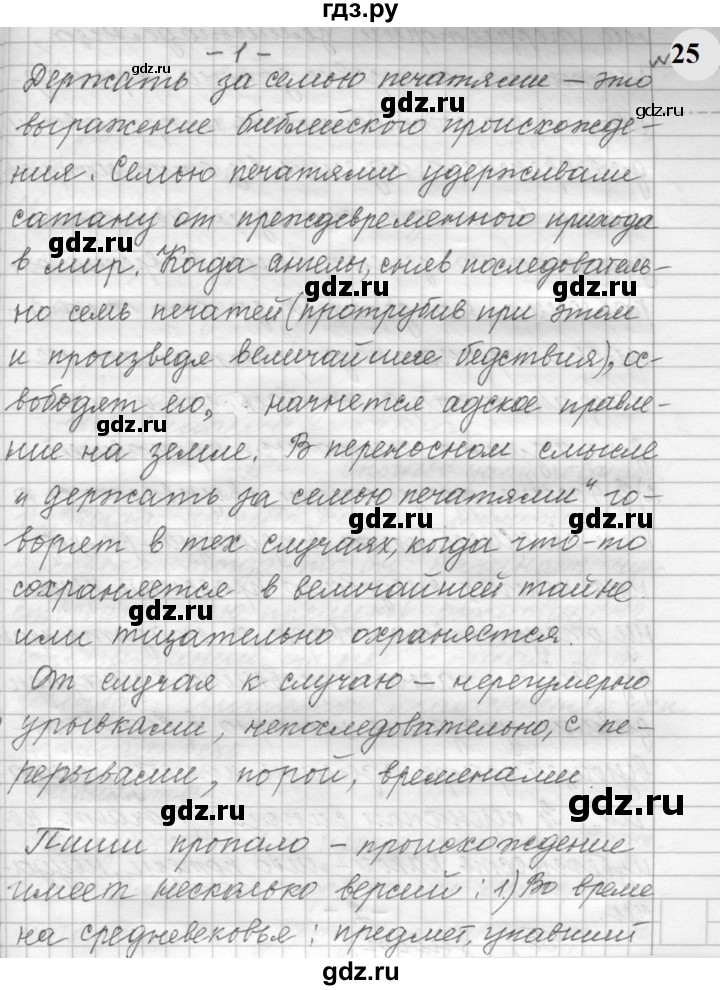 гдз.ру
- 1 -
№25
Держать за семью печатями – это
выражение библейского происхожде-
ния. Семью печатями удерживали
сатану от преждевременного прихода
в мир. Когда ангелы, сняв последователь-
но семь печатей (протрубив при этом
и произведя величайшие бедствия), ос-
вободят его, начнется адское правле-
ние на земле. В переносном смысле
"держать за семью печатями" го-
ворят в тех случаях, когда что-то
сохраняется в величайшей тайне
или тщательно охраняется.
От случая к случаю – нерегулярно
урывками, непоследовательно, с пе-
рерывами, порой, временами
Пиши пропало – происхождение
имеет несколько версий: 1) Во време
на средневековья: предмет, упавший
gdz.ru
gdz.ru
gdz.ru
gdz.ru
gdz.ru
gdz.ru
gdz.ru
gdz.ru
gdz.ru
gdz.ru
gdz.ru